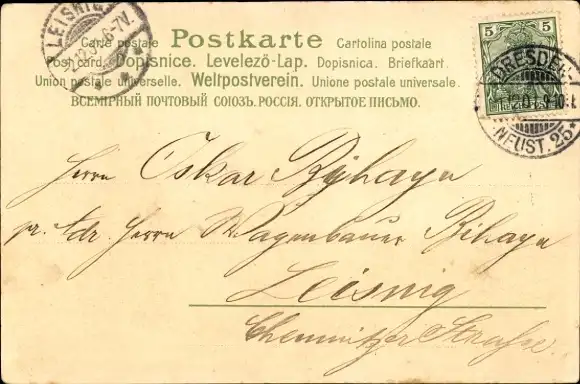 Carte postale Postkarte Cartolina postale
Post card. Dopisnice. Levelező-Lap. Dopisnica. Briefkaart
Union postale universelle. Weltpostverein. Unione postale universale.
ВСЕМІРНЫЙ ПОЧТОВЫЙ СОЮЗЪ. РОССІЯ. ОТКРЫТОЕ ПИСЬМО.
LEISNIG
6-7V.
5 5
DRESDEN
NEUST. 25
Herrn Oskar Bihayn
pr. Adr. Herrn Wagenbauer Bihayn
Leisnig
Chemnitzer Strasse.